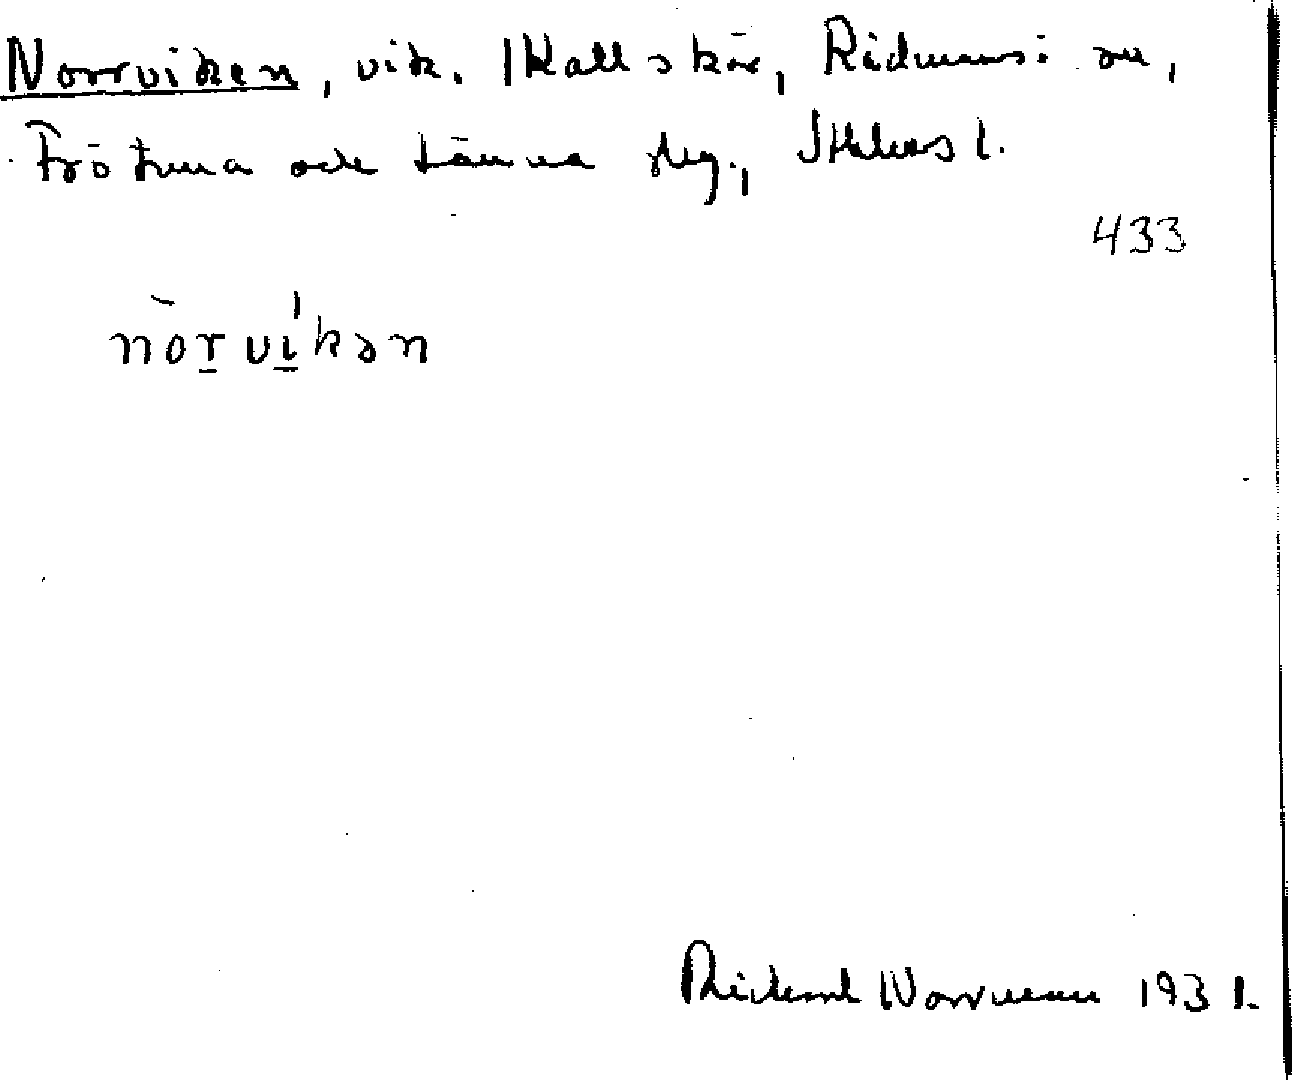 Norrviken, vik. Kallskär, Rådmansö sn,
Frötuna och Länna skg., Sthlms l.
433
nòrvíkən
Rickard Norrman 1931.